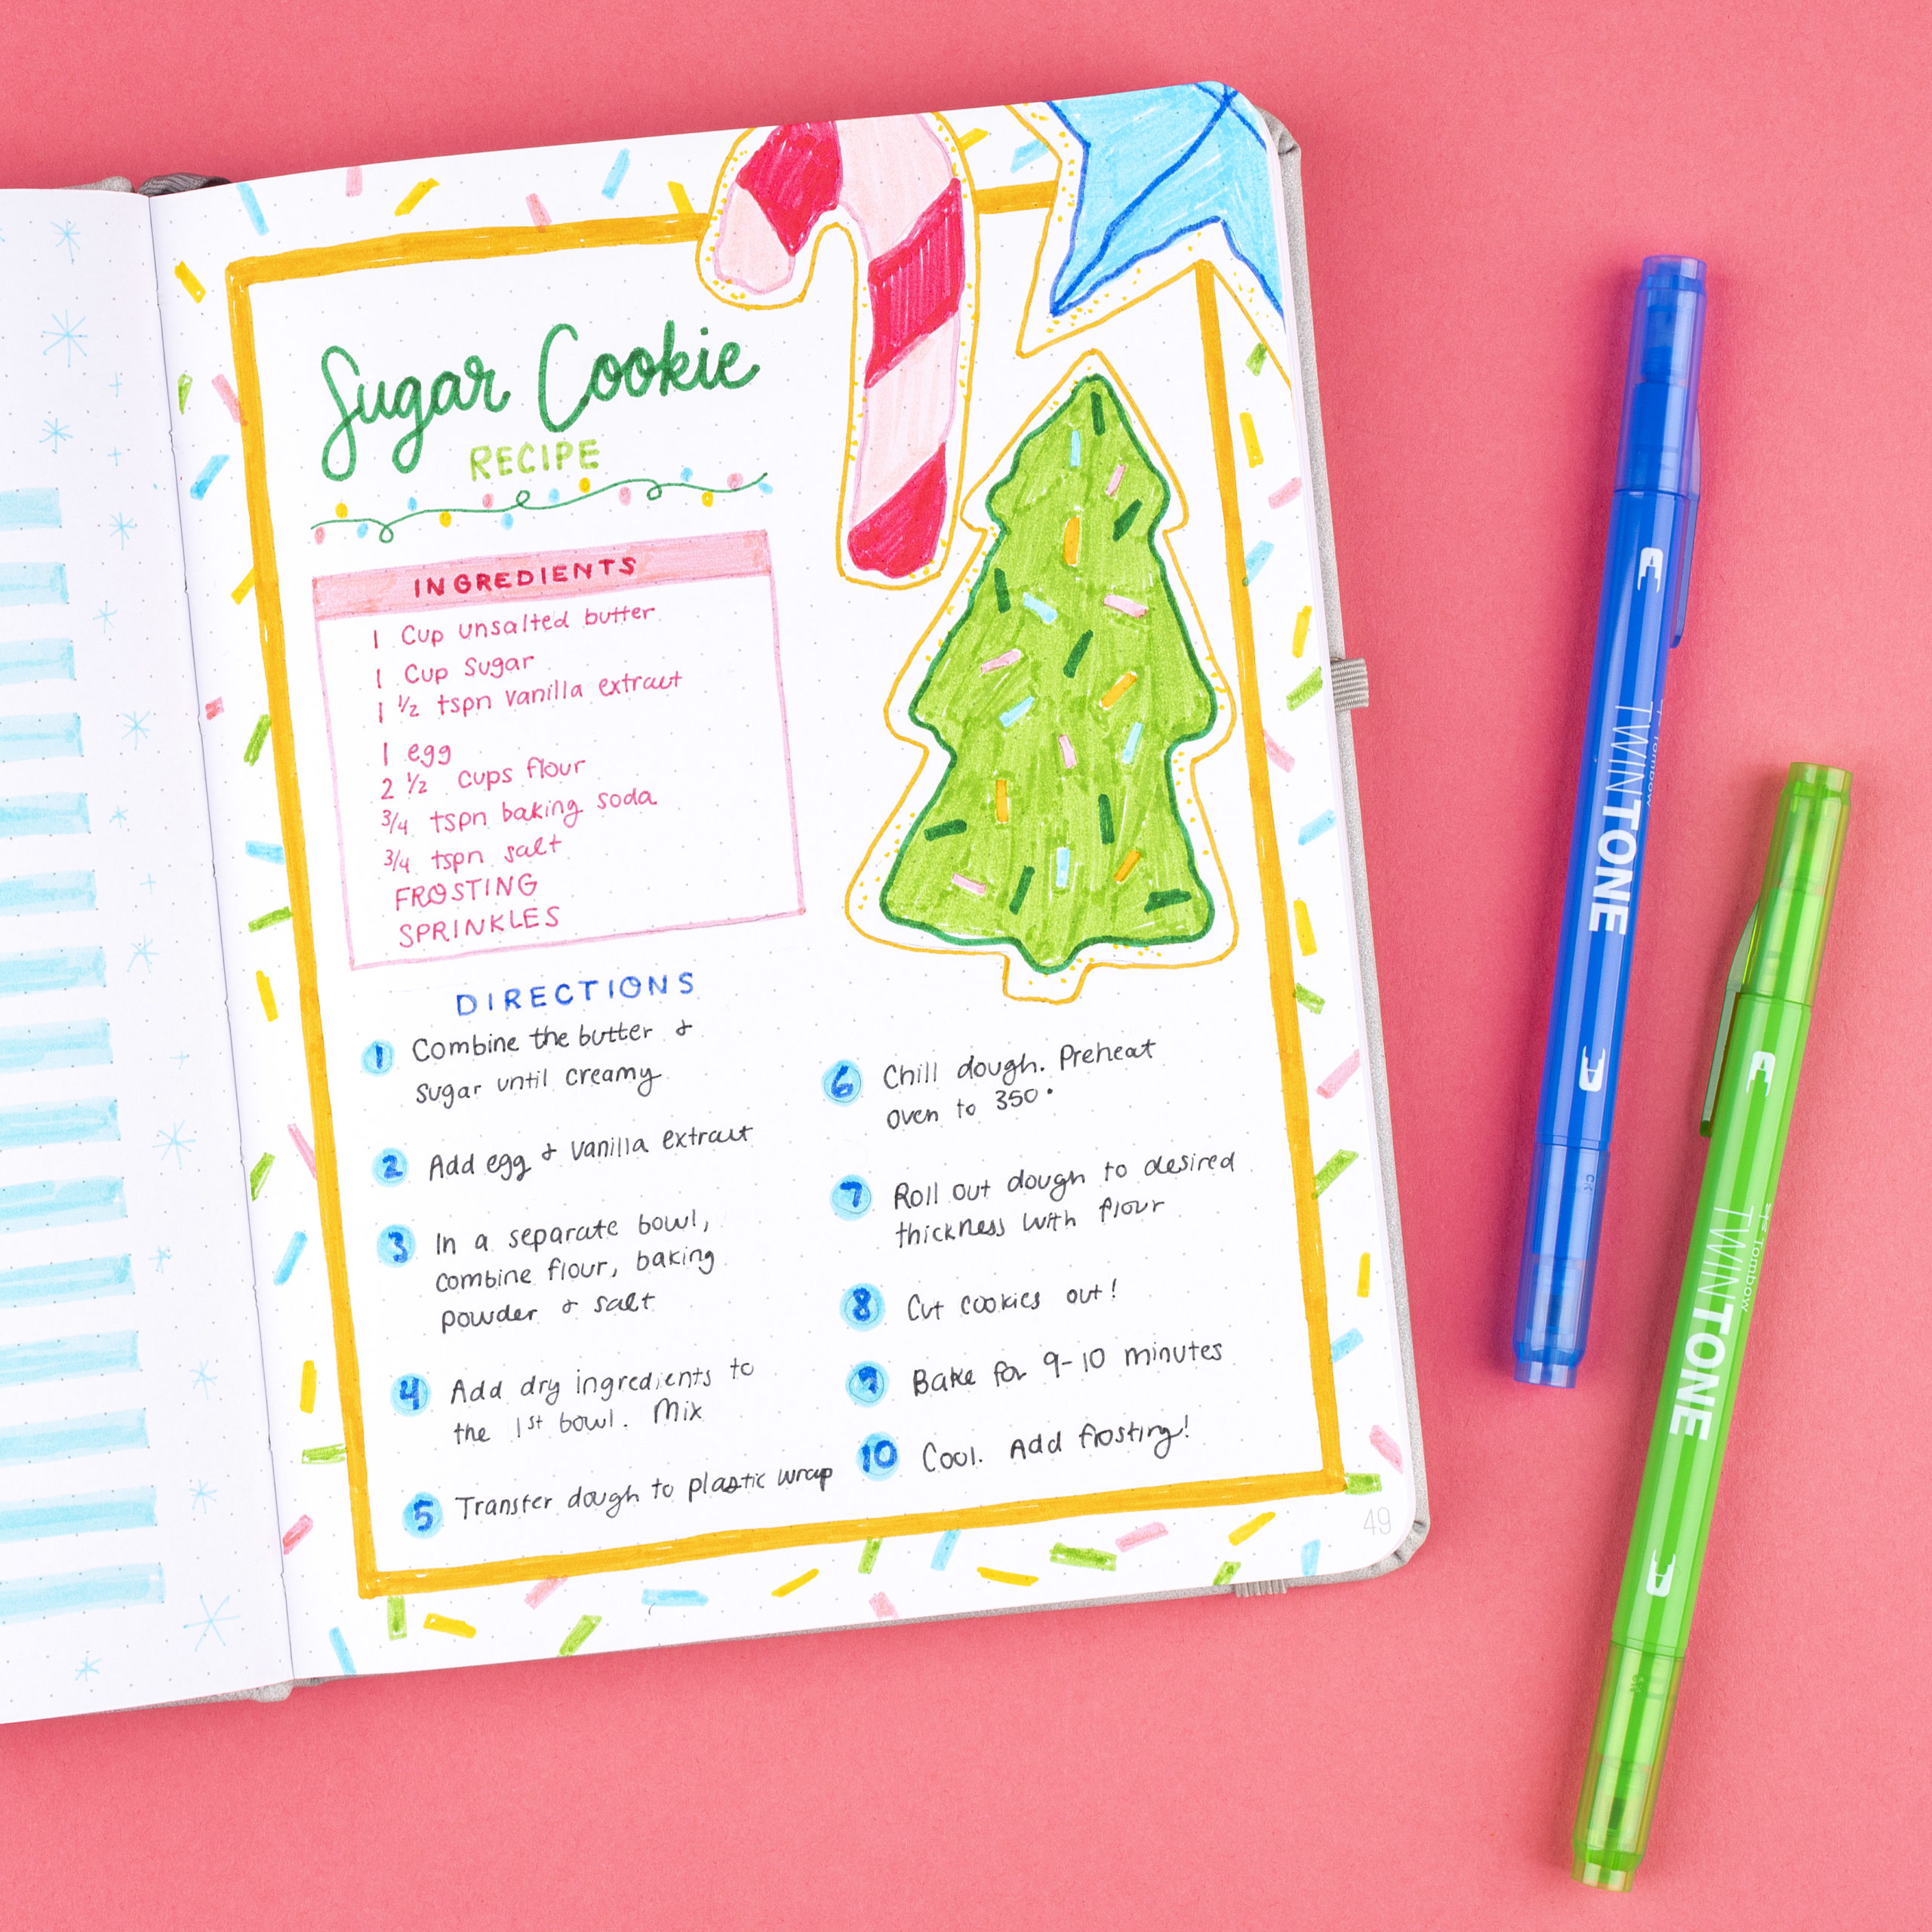 Sugar Cookie
RECIPE
INGREDIENTS
1 Cup unsalted butter
1 Cup Sugar
1 1/2 tspn vanilla extract
1 egg
2 1/2 cups flour
3/4 tspn baking soda
3/4 tspn salt
FROSTING
SPRINKLES
DIRECTIONS
1 Combine the butter &
sugar until creamy
2 Add egg & vanilla extract
3 In a separate bowl,
combine flour, baking
powder & salt
4 Add dry ingredients to
the 1st bowl. Mix
5 Transfer dough to plastic wrap
6 Chill dough. Preheat
oven to 350°
7 Roll out dough to desired
thickness with flour
8 Cut cookies out!
9 Bake for 9-10 minutes
10 Cool. Add frosting!
49
Tombow
TWINTONE
Tombow
TWINTONE